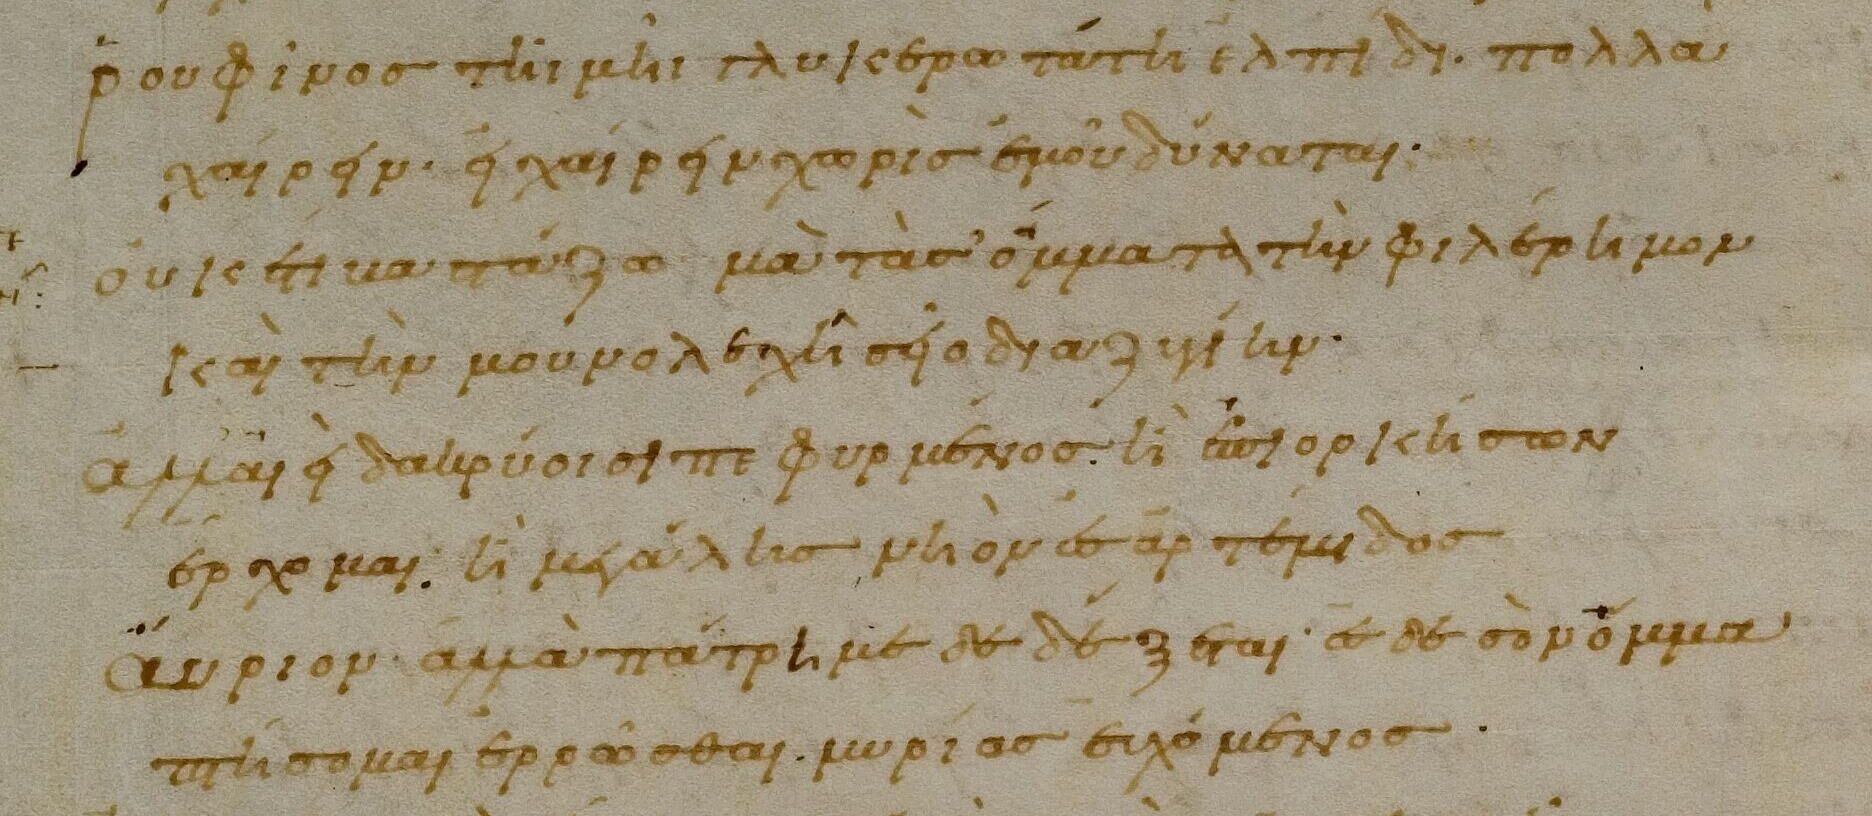 ῥουφῖνος τῆι μῆι γλυκερωτάτη ἐλπίδι· πολλὰ
χαίρειν· εἰ χαίρειν χωρὶς ἐμοῦ δύναται·
ὀυκέτι βαστάζω μὰ τὰ σ' ὄμματα τὴν φιλέρημον
καὶ τὴν μουνολεχῆ σεῖο διαζυγίην·
ἀλλ' ἀιεὶ δακρύοισι πεφυρμένος· ἢ ἐπιορκήσων
ἔρχομαι· ἢ μεγάλης νηὸν ἐς ἀρτέμιδος
ἄυριον ἀλλὰ πάτρη με δεδέξεται· ἐς δὲ σὸν ὄμμα
πτήσομαι ἐρρῶσθαι· μυρία σ' εὐχόμενος·